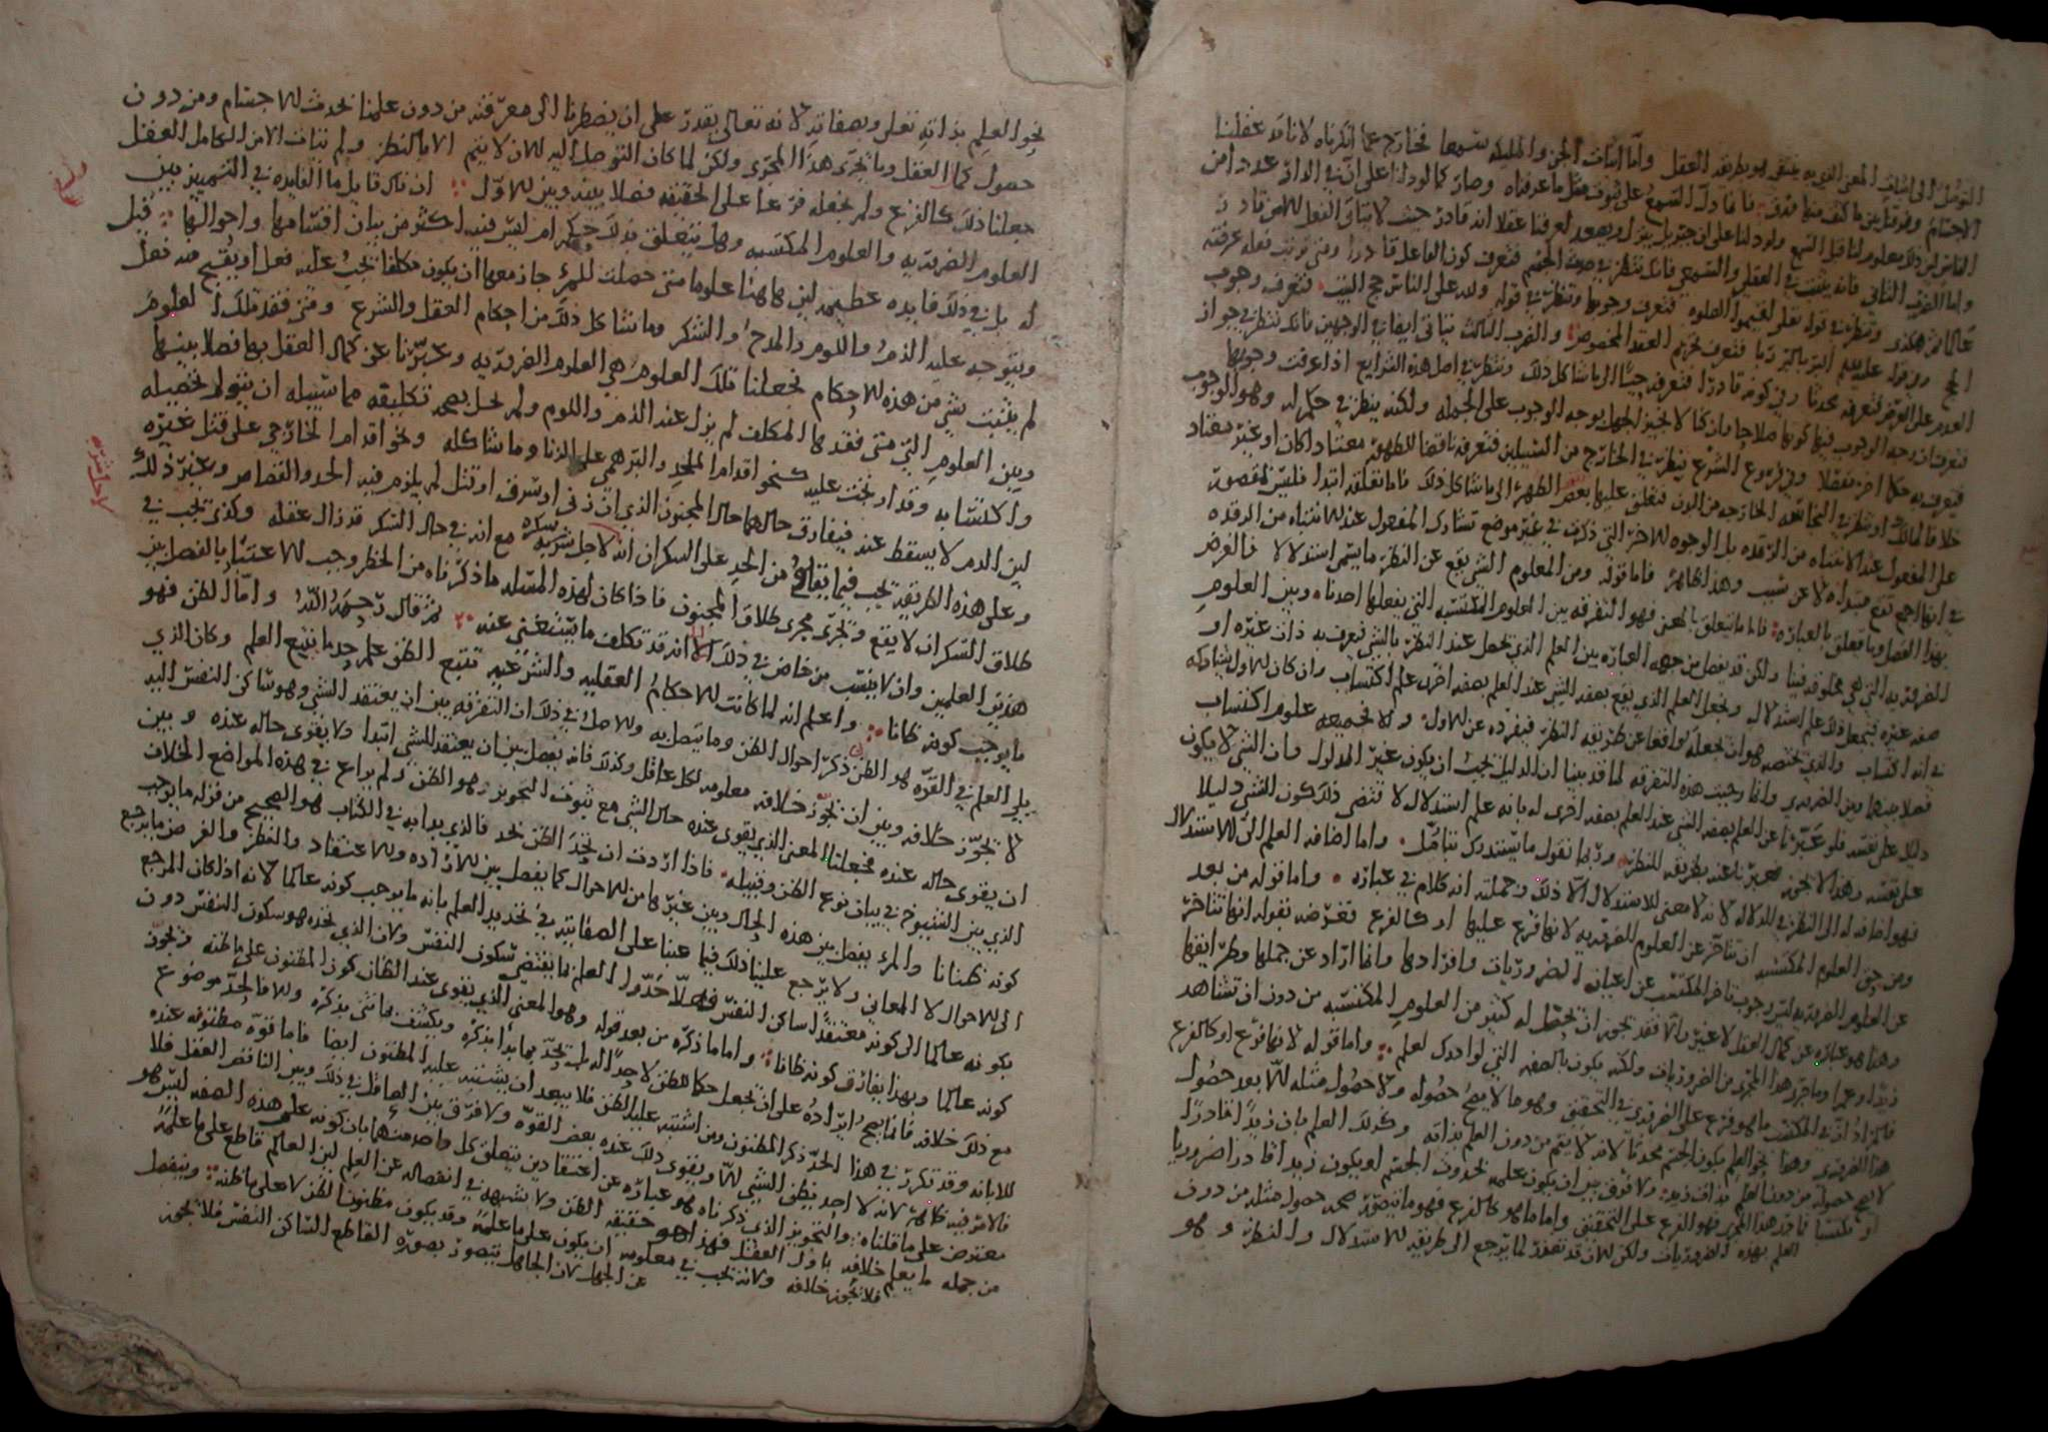 التوصل الى اثبات المعنى الذي به ينتفي هو بطريقه العقل واما اثبات الجن والمليكه سمعا فخارج عما انكرناه لانا قد عقلنا
الاجسام وفرقنا بين ما كثف منها
الناس لم يكن ذلك معلوما لنا قبل السمع ولو دلنا على ان جبريل ينزل ويصعد لعرفنا عقلا انه قادر حيث لا يتاتى الفعل الا من قادر
واما الضرب الثاني فانه يثبت في العقلي والسمعي فانك تنظر في صحه الفعل فتعرف كون الفاعل قادرا ومتى ترتب فعله عرفته
عالما ثم هكذى وتنظر في قوله تعلى اقيموا الصلوه فتعرف وجوبها وتنظر في قوله ولله على الناس حج البيت فتعرف وجوب
الحج وفي قوله عليه السلم البر بالبر ربا فتعرف تحريم العقد المخصوص والضرب الثالث يتاتى ايضا في الوجهين فانك تنظر في جواز
العدم على العرض فتعرفه محدثا وفي كونه قادرا فتعرفه حيا الى ما شاكل ذلك وتنظر في اصل هذه الشرايع اذا عرفت وجوبها
فتعرف ان وجه الوجوب فيها كونها صلاحا وان كنا لا نجيز الجهل بوجه الوجوب على الجمله ولكنه ينظر في حكم له وهو الوجوب
فيعرف به حكما اخر مفصلا وفي فروع الشرع ينظر في الخارج من السبيلين فتعرفه ناقضا للطهر معتادا كان او غير معتاد
على المفعول عند الانتباه من الرقده بل الوجوه الاخر التي ذكرت في غير موضع تشارك المفعول عند الانتباه من الرقده
في انها اجمع تقع مبتداه لا عن سبب وهذا ظاهر فاما قوله ومن المعلوم الذي يقع عن النظر ما يسمى استدلالا فالغرض
بهذا الفصل وما يتعلق بالعباره فاما ما يتعلق بالمعنى فهو التفرقه بين العلوم المكتسبه التي يفعلها احدنا وبين العلوم
الضروريه التي هي مخلوقه فينا ولكن قد يفصل من جهه العباره بين العلم الذي يحصل عند النظر بالشي فتعرف به ذات غيره او
صفه غيره فيجعل ذلك علم استدلال ويجعل العلم الذي يقع بصفه الشي عند العلم بصفه اخرى علم اكتساب وان كان الاول يشاركه
في انه اكتساب والذي يختصه هو ان يجعله واقعا عن طريقه النظر فيفرده عن الاول والا فجميعه علوم اكتساب
فصلا بينهما وبين الضروري وانما وجبت هذه التفرقه لما قد بينا ان الدليل يجب ان يكون غير المدلول وان الشي لا يكون
دليلا على نفسه فلو عبرنا عن العلم بصفه الشي عند العلم بصفه اخرى له بانه علم استدلال لا تقتضى ذلك كون الشي دليلا
على نفسه وهذا لا يجوز فعبرنا عنه بطريقه النظر وربما نقول ما يستدرك بتامل واما اضافه العلم الى الاستدلال
فهو اضافه له الى النظر في الدلاله لانه لا معنى للاستدلال الا ذلك وجملته انه كلام في عباره واما قوله من بعد
ومن حق العلوم المكتسبه ان تتاخر عن العلوم الضروريه لانها فرع عليها او كالفرع فغرضه بقوله انها تتاخر
عن العلوم الضروريه ليس وجوب تاخر المكتسب عن اعيان الضروريات وافرادها وانما اراد عن جملها وطرايقها
وهذا هو عباره عن كمال العقل لا غير والا فقد يجوز ان تحصل له كثير من العلوم المكتسبه من دون ان تشاهد
زيدا وعمرا وما جرى هذا المجرى من الضروريات ولكنه يكون بالصفه التي لو ادرك لعلم واما قوله لانها فرع او كالفرع
فالمراد ان في المكتسب ما هو فرع على الضروري في التحقيق وهو ما لا يصح حصوله ولا حصول مثله الا بعد حصول
هذا الضروري وهذا نحو العلم بكون الجسم محدثا لانه لا يتم من دون العلم بذاته وكذلك العلم بان زيدا قادرا
لا يصح حصوله من دون العلم بذات زيد ولا فرق بين ان يكون علمه بحدوث الجسم او بكون زيد قادرا ضروريا
او مكتسبا فما جرى هذا المجرى فهو الفرع على التحقيق واما ما هو كالفرع فهو ما يتصور صحه حصول مثله من دون
العلم بهذه الضروريات ولكن الان قد تعذر لما يرجع الى طريقه الاستدلال والنظر وهو
نحو العلم بذاته تعلى وبصفاته لانه تعالى يقدر على ان يضطرنا الى معرفته من دون علمنا بحدث الاجسام ومن دون
حصول كمال العقل وما يجرى هذا المجرى ولكن لما كان التوصل اليه الان لا يتم الا بالنظر ولم يتات الا من الكامل العقل
جعلنا ذلك كالفرع ولم نجعله فرعا على الحقيقه فصلا بينه وبين الاول ان قال قايل ما الفايده في التمييز بين
العلوم الضروريه والعلوم المكتسبه وهل يتعلق بذلك حكم ام ليس فيه اكثر من بيان اقسامها واحوالها قيل
له بل في ذلك فايده عظيمه لان هاهنا علوما متى حصلت للمرء جاز معها ان يكون مكلفا يجب عليه فعل او يقبح منه فعل
ويتوجه عليه الذم واللوم والمدح والشكر وما شاكل ذلك من احكام العقل والشرع ومتى فقد تلك العلوم
لم يثبت شي من هذه الاحكام فجعلنا تلك العلوم هي العلوم الضروريه وعبرنا عن كمال العقل بها فصلا بينها
وبين العلوم التي متى فقدها المكلف لم يزل عنه الذم واللوم ولم يخل بصحه تكليفه مما سبيله ان يتولى تحصيله
واكتسابه وقد اوجبت عليه كنحو اقدام الملحد والبرهمي على الزنا وما شاكله ونحو اقدام الخارجي على قتل غيره
لان الذم لا يسقط عنه فيفارق حالهما حال المجنون الذي ان زنى او سرق او قتل لم يلزم فيه الحد والقصاص وغير ذلك
وعلى هذه الطريقه يجب فيما يقام من الحد على السكران انه لاجل شربه سكره مع انه في حال السكر قد زال عقله وكذى يجب في
طلاق السكران لا يقع ويجرى مجرى طلاق المجنون فاذا كان لهذه المسله ما ذكرناه من الحظ وجب الاعتناء بالفصل بين
هذين العلمين وان لا ينسب من خاض في ذلك الى انه قد تكلف ما يستغنى عنه ثم قال رحمه الله واما الظن فهو
ما يوجب كونه ظانا واعلم انه لما كانت الاحكام العقليه والشرعيه تتبع الظن على حد ما تتبع العلم وكان الذي
يلي العلم في القوه هو الظن ذكر احوال الظن وما يتصل به والاصل في ذلك ان التفرقه بين ان يعتقد الشي وهو ساكن النفس اليه
لا يجوز خلافه وبين ان يجوز خلافه معلومه لكل عاقل وكذلك فانه يفصل بين ان يعتقد الشي ابتدا ولا يقوى حاله عنده وبين
ان يقوى حاله عنده فجعلنا المعنى الذي يقوى عنده حال الشي مع ثبوت التجويز وهو الظن ولم يراع في هذه المواضع الخلاف
الذي بين الشيوخ في بيان نوع الظن وقبيله فاذا اردت ان تحد الظن بحد فالذي بدا به في الكتاب هو الصحيح من قوله ما يوجب
كونه ظانا والمرء يفصل بين هذه الحال وبين غيرها من الاحوال كما يفصل بين الاراده والاعتقاد والنظر والغرض ما يرجع
الى الاحوال لا المعاني ولا يرجع علينا ذلك فيما عبنا على الصفاتيه في تحديد العلم بانه ما يوجب كونه عالما لانه اذا كان المرجع
بكونه عالما الى كونه معتقدا ساكن النفس فهلا حدوا العلم بما يقتضي سكون النفس ولان الذي نحده هو سكون النفس دون
كونه عالما وبهذا يفارق كونه ظانا واما ما ذكره من بعد قوله وهو المعنى الذي يقوى عند الظان كون المظنون على ما ظنه ويجوز
مع ذلك خلافه فانما يصح ايراده على ان نجعل حكما للظن لا حدا له بل نحد بما بدا بذكره ويكشف بما ثنى بذكره والا فالحد موضوع
للابانه وقد تكرر في هذا الحد ذكر المظنون ومن اشتبه عليه الظن فلا يبعد ان يشتبه عليه المظنون ايضا فاما قوه مظنونه عنده
فالامر فيه ظاهر لانه لا احد يظن الشي الا ويقوى ذلك عنده بعض القوه ولا فرق بين العاقل في ذلك وبين الناقص العقل فلا
معترض على ما قلناه والتجويز الذي ذكرناه هو عباره عن اعتقادين يتعلق كل واحد منهما بان كونه على هذه الصفه ليس هو
من جمله ما يعلم خلافه باول العقل فهذا هو حقيقه الظن ولا شبهه في انفصاله عن العلم لان العالم قاطع على ما علمه
فلا يجوز خلافه ولانه يجب في معلومه ان يكون على ما علمه وقد يكون مظنون الظن لا على ما ظنه وينفصل
عن الجهل لان الجاهل يتصور بصوره القاطع الساكن النفس فلا يجوز